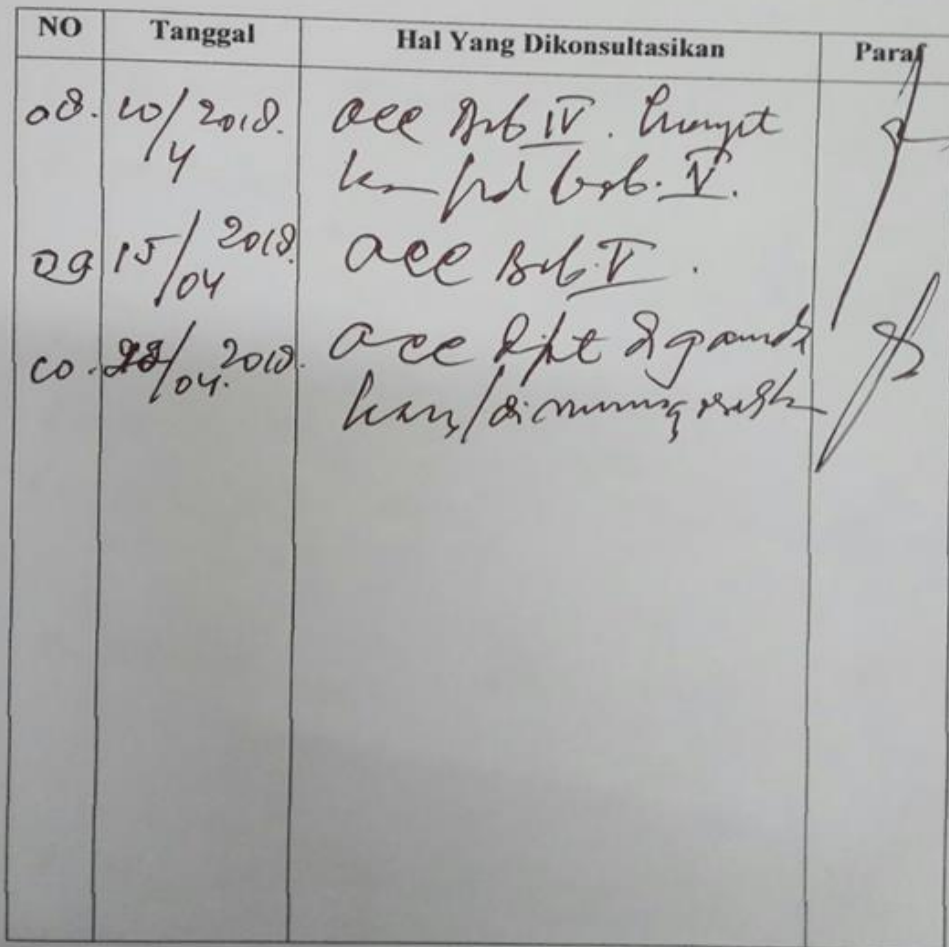 NO Tanggal Hal Yang Dikonsultasikan Paraf
08. 10/4 2018. acc Bab IV. Lanjut
kan pd bab. V.
09 15/04 2018. acc Bab V.
10. 04. 2018. acc dpt diganda
kan/